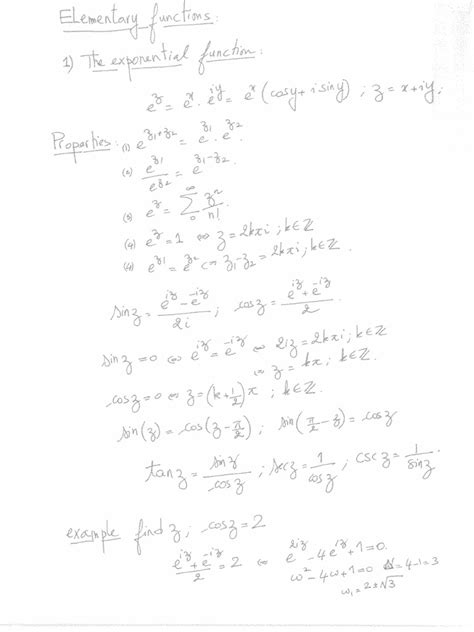 Elementary functions:
1) The exponential function:
e^z = e^x . e^{iy} = e^x (cosy + i siny) ; z = x+iy;
Properties: (1) e^{z1+z2} = e^{z1} . e^{z2}
(2) e^{z1}/e^{z2} = e^{z1-z2}
(3) e^z = ∑_0^∞ z^n/n!
(4) e^z = 1 ⇔ z = 2kπi ; k∈ℤ
e^{z1} = e^{z2} ⇔ z1-z2 = 2kπi ; k∈ℤ.
sin z = (e^{iz} - e^{-iz})/2i ; cos z = (e^{iz} + e^{-iz})/2
sin z = 0 ⇔ e^{iz} = e^{-iz} ⇔ 2iz = 2kπi ; k∈ℤ
⇔ z = kπ ; k∈ℤ.
cos z = 0 ⇔ z = (k+1/2)π ; k∈ℤ.
sin(z) = cos(z-π/2) ; sin(π/2 - z) = cos z
tan z = sin z/cos z ; sec z = 1/cos z ; csc z = 1/sin z
example find z ; cos z = 2
(e^{iz} + e^{-iz})/2 = 2 ⇔ e^{2iz} - 4e^{iz} + 1 = 0.
ω² - 4ω + 1 = 0 Δ' = 4-1 = 3
ω₁ = 2±√3